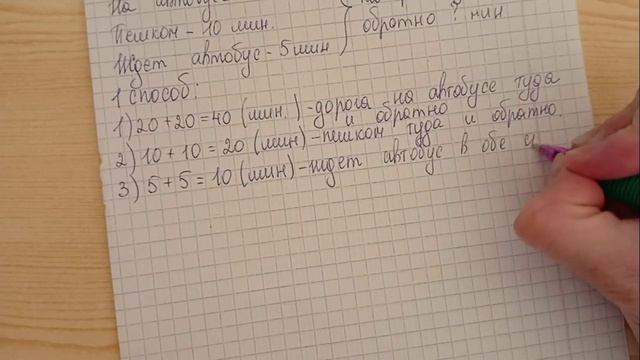 На
Пешком - 10 мин.
Ждет автобус - 5 мин
обратно ? мин
1 способ:
1) 20 + 20 = 40 (мин.) - дорога на автобусе туда
и обратно
2) 10 + 10 = 20 (мин) - пешком туда и обратно.
3) 5 + 5 = 10 (мин) - ждет автобус в обе